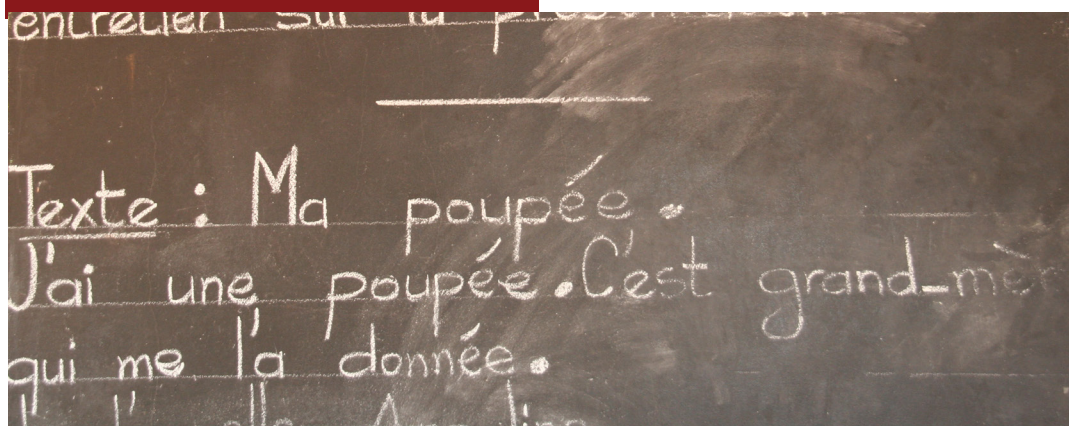 entretien sur la
Texte : Ma poupée.
J'ai une poupée. C'est grand-mèr
qui me l'a donnée.